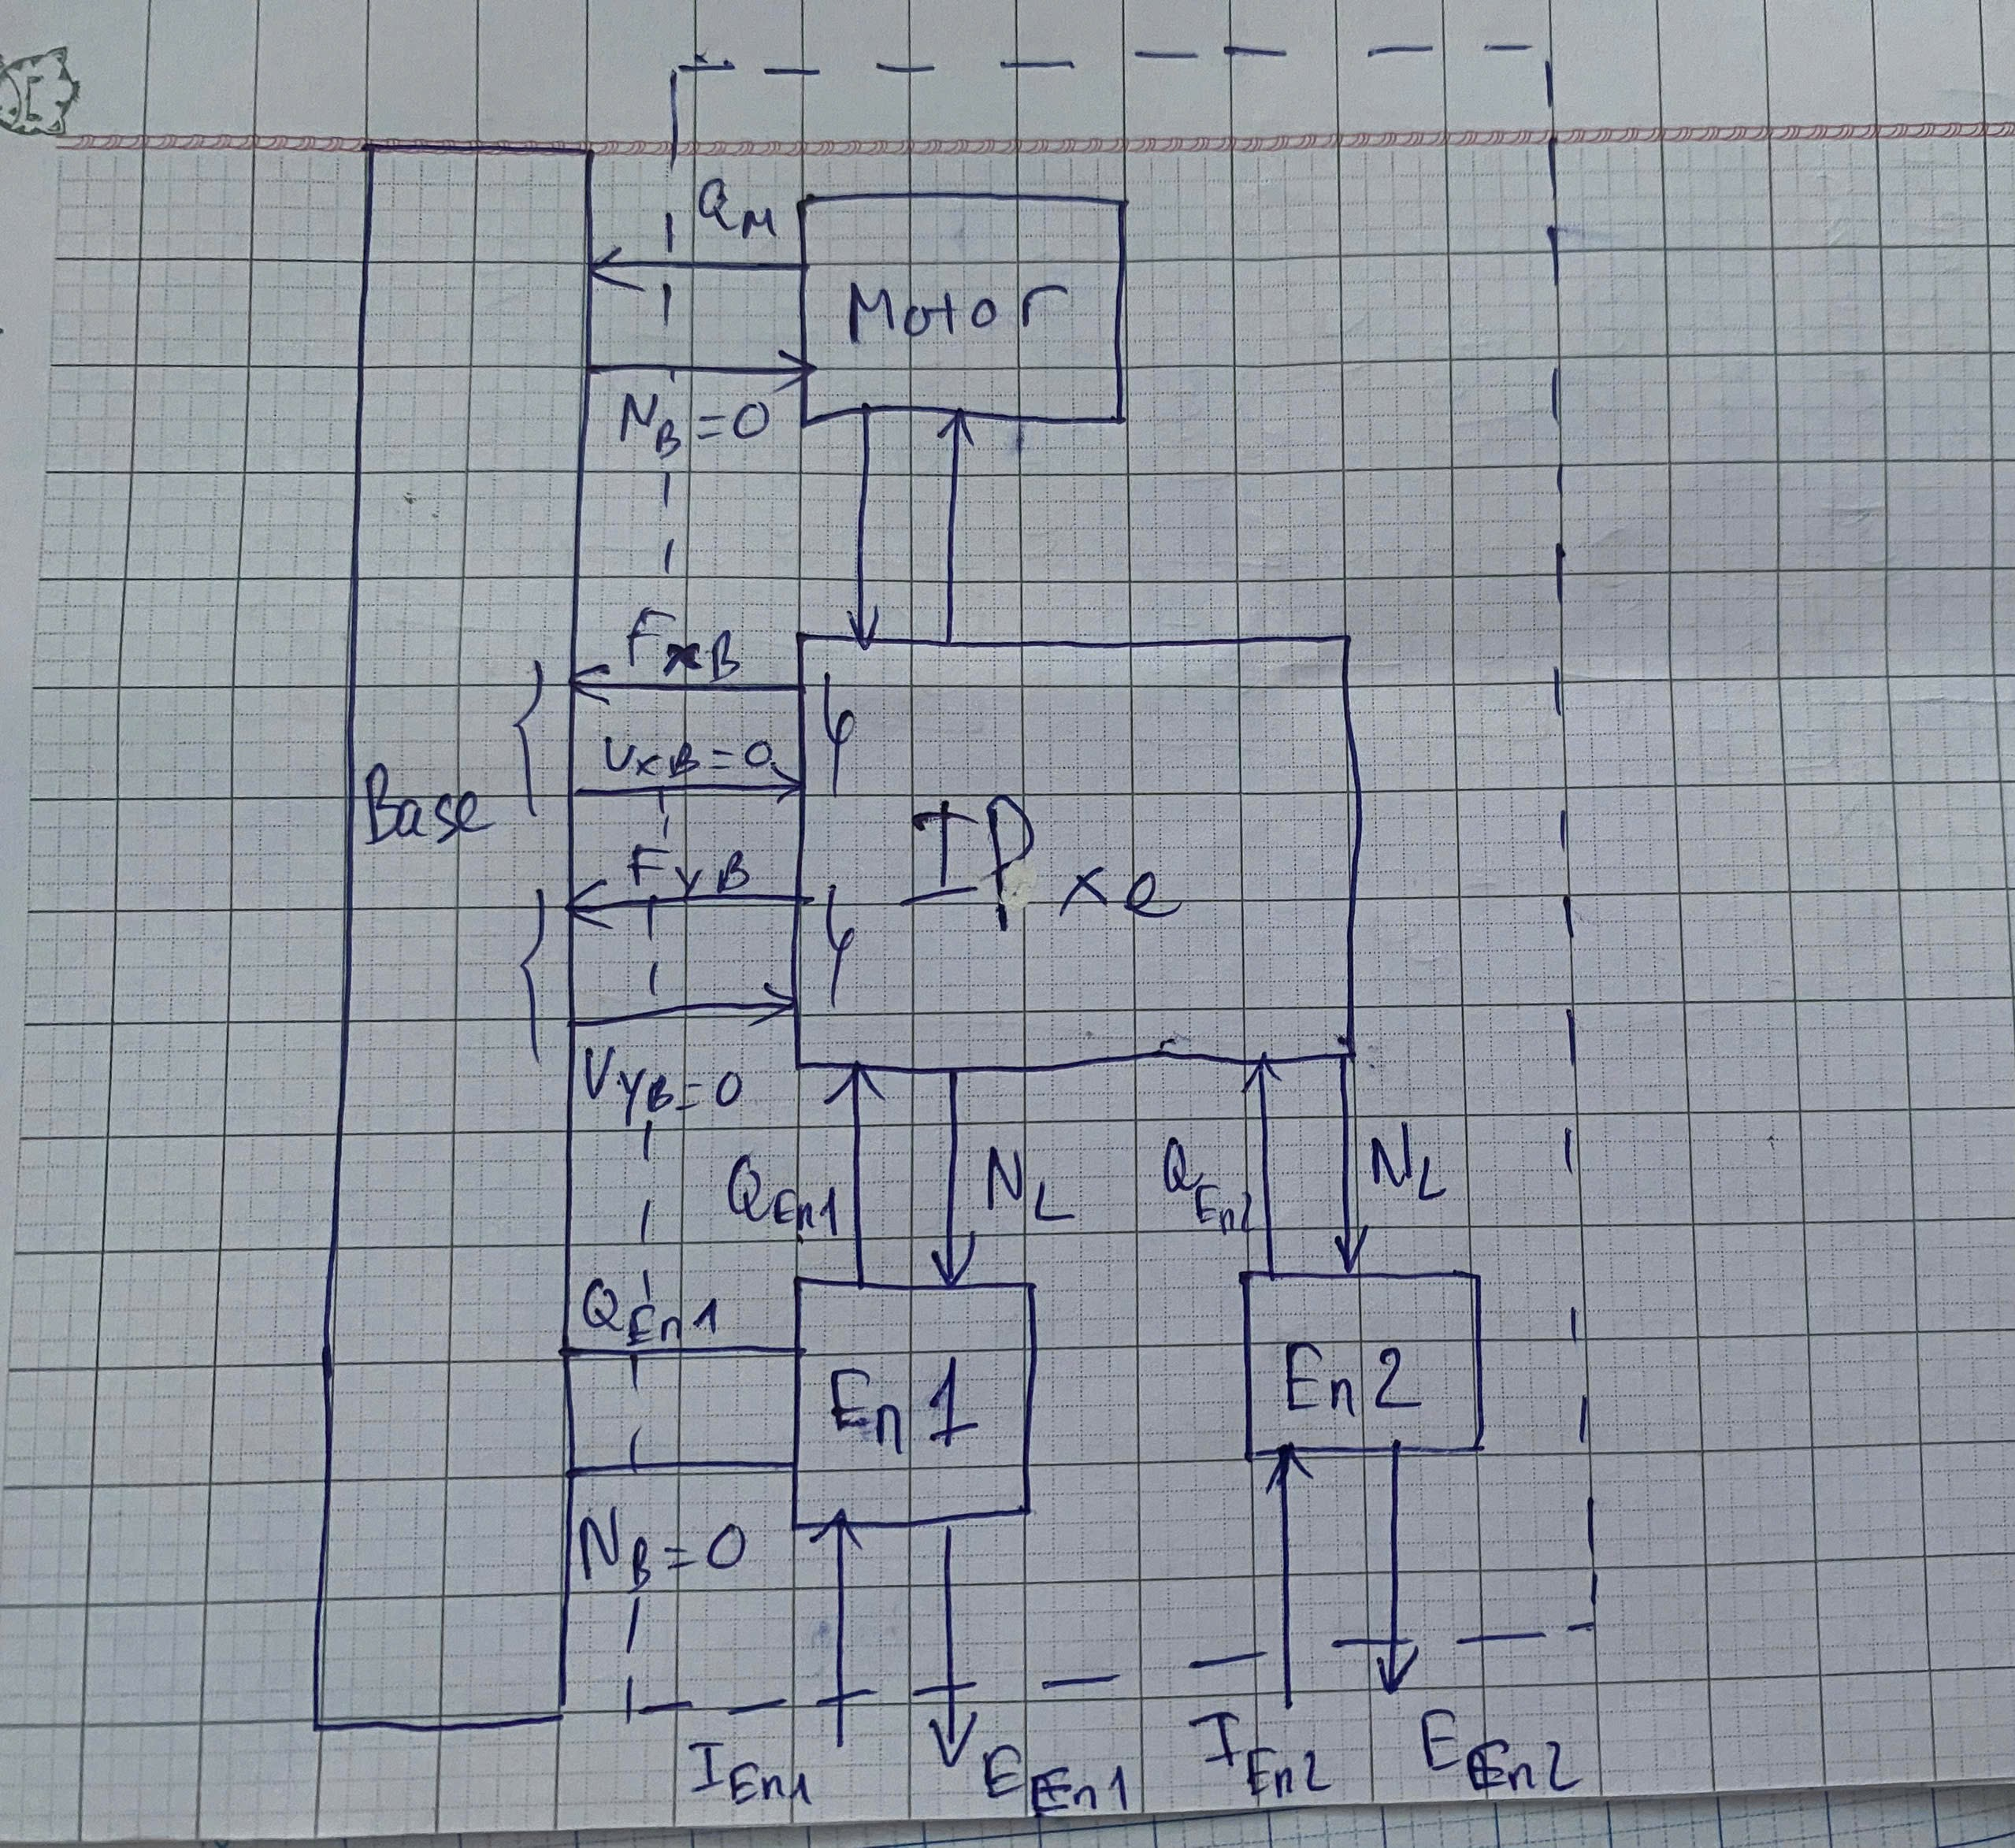 Q_M
Motor
N_B=0
F_xB
V_xB=0
Base
IP xe
F_yB
V_yB=0
Q_En1
N_L
Q_En2
N_L
Q_En1
En 1
En 2
N_B=0
I_En1
E_En1
I_En2
E_En2